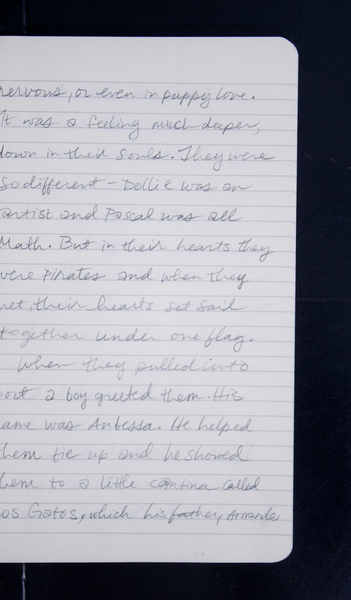 nervous, or even in puppy love.
It was a feeling much deeper,
down in their souls. They were
so different - Dollie was an
artist and Pascal was all
Math. But in their hearts they
were Pirates and when they
met, their hearts set sail
together under one flag.
When they pulled into
port a boy greeted them. His
name was Anbessa. He helped
them tie up and he showed
them to a little cantina called
Los Gatos, which his father, Armando